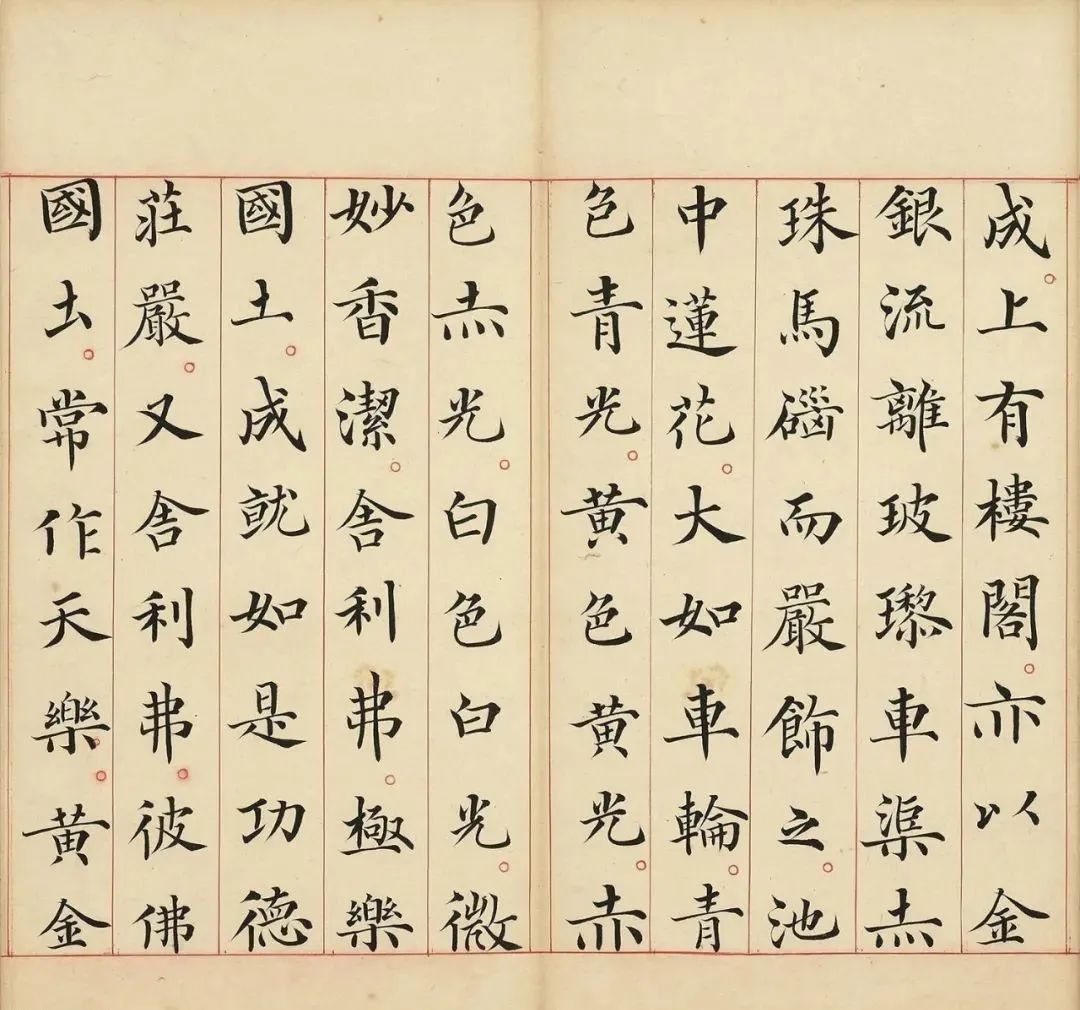 成上有樓閣亦以金
銀流離玻瓈車渠赤
珠馬碯而嚴飾之池
中蓮花大如車輪青
色青光黃色黃光赤
色赤光白色白光微
妙香潔舍利弗極樂
國土成就如是功德
莊嚴又舍利弗彼佛
國土常作天樂黃金